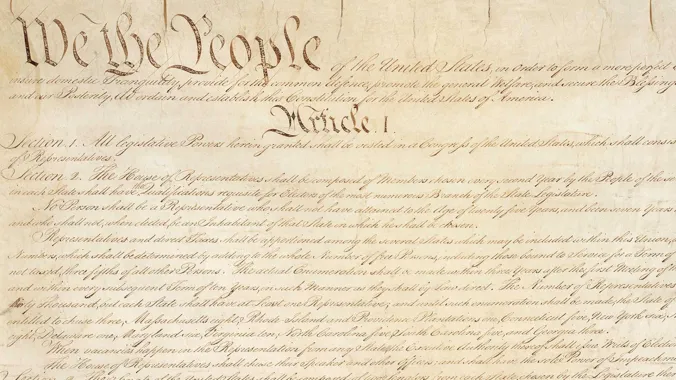 We the People of the United States, in Order to form a more perfect
insure domestic Tranquility, provide for the common defence, promote the general Welfare, and secure the Blessings
and our Posterity, do ordain and establish this Constitution for the United States of America.
Article. I.
Section. 1. All legislative Powers herein granted shall be vested in a Congress of the United States, which shall consist
of Representatives.
Section. 2. The House of Representatives shall be composed of Members chosen every second Year by the People of the
in each State shall have the Qualifications requisite for Electors of the most numerous Branch of the State Legislature.
No Person shall be a Representative who shall not have attained to the Age of twenty five Years, and been seven Years
and who shall not, when elected, be an Inhabitant of that State in which he shall be chosen.
Representatives and direct Taxes shall be apportioned among the several States which may be included within this Union,
Numbers, which shall be determined by adding to the whole Number of free Persons, including those bound to Service for a Term of
not taxed, three fifths of all other Persons. The actual Enumeration shall be made within three Years after the first Meeting of the
and within every subsequent Term of ten Years, in such Manner as they shall by Law direct. The Number of Representatives
thirty Thousand, but each State shall have at Least one Representative; and until such enumeration shall be made, the State of
entitled to chuse three, Massachusetts eight, Rhode-Island and Providence Plantations one, Connecticut five, New-York six,
eight, Delaware one, Maryland six, Virginia ten, North Carolina five, South Carolina five, and Georgia three.
When vacancies happen in the Representation from any State, the Executive Authority thereof shall issue Writs of Election
The House of Representatives shall chuse their Speaker and other Officers; and shall have the sole Power of Impeachment